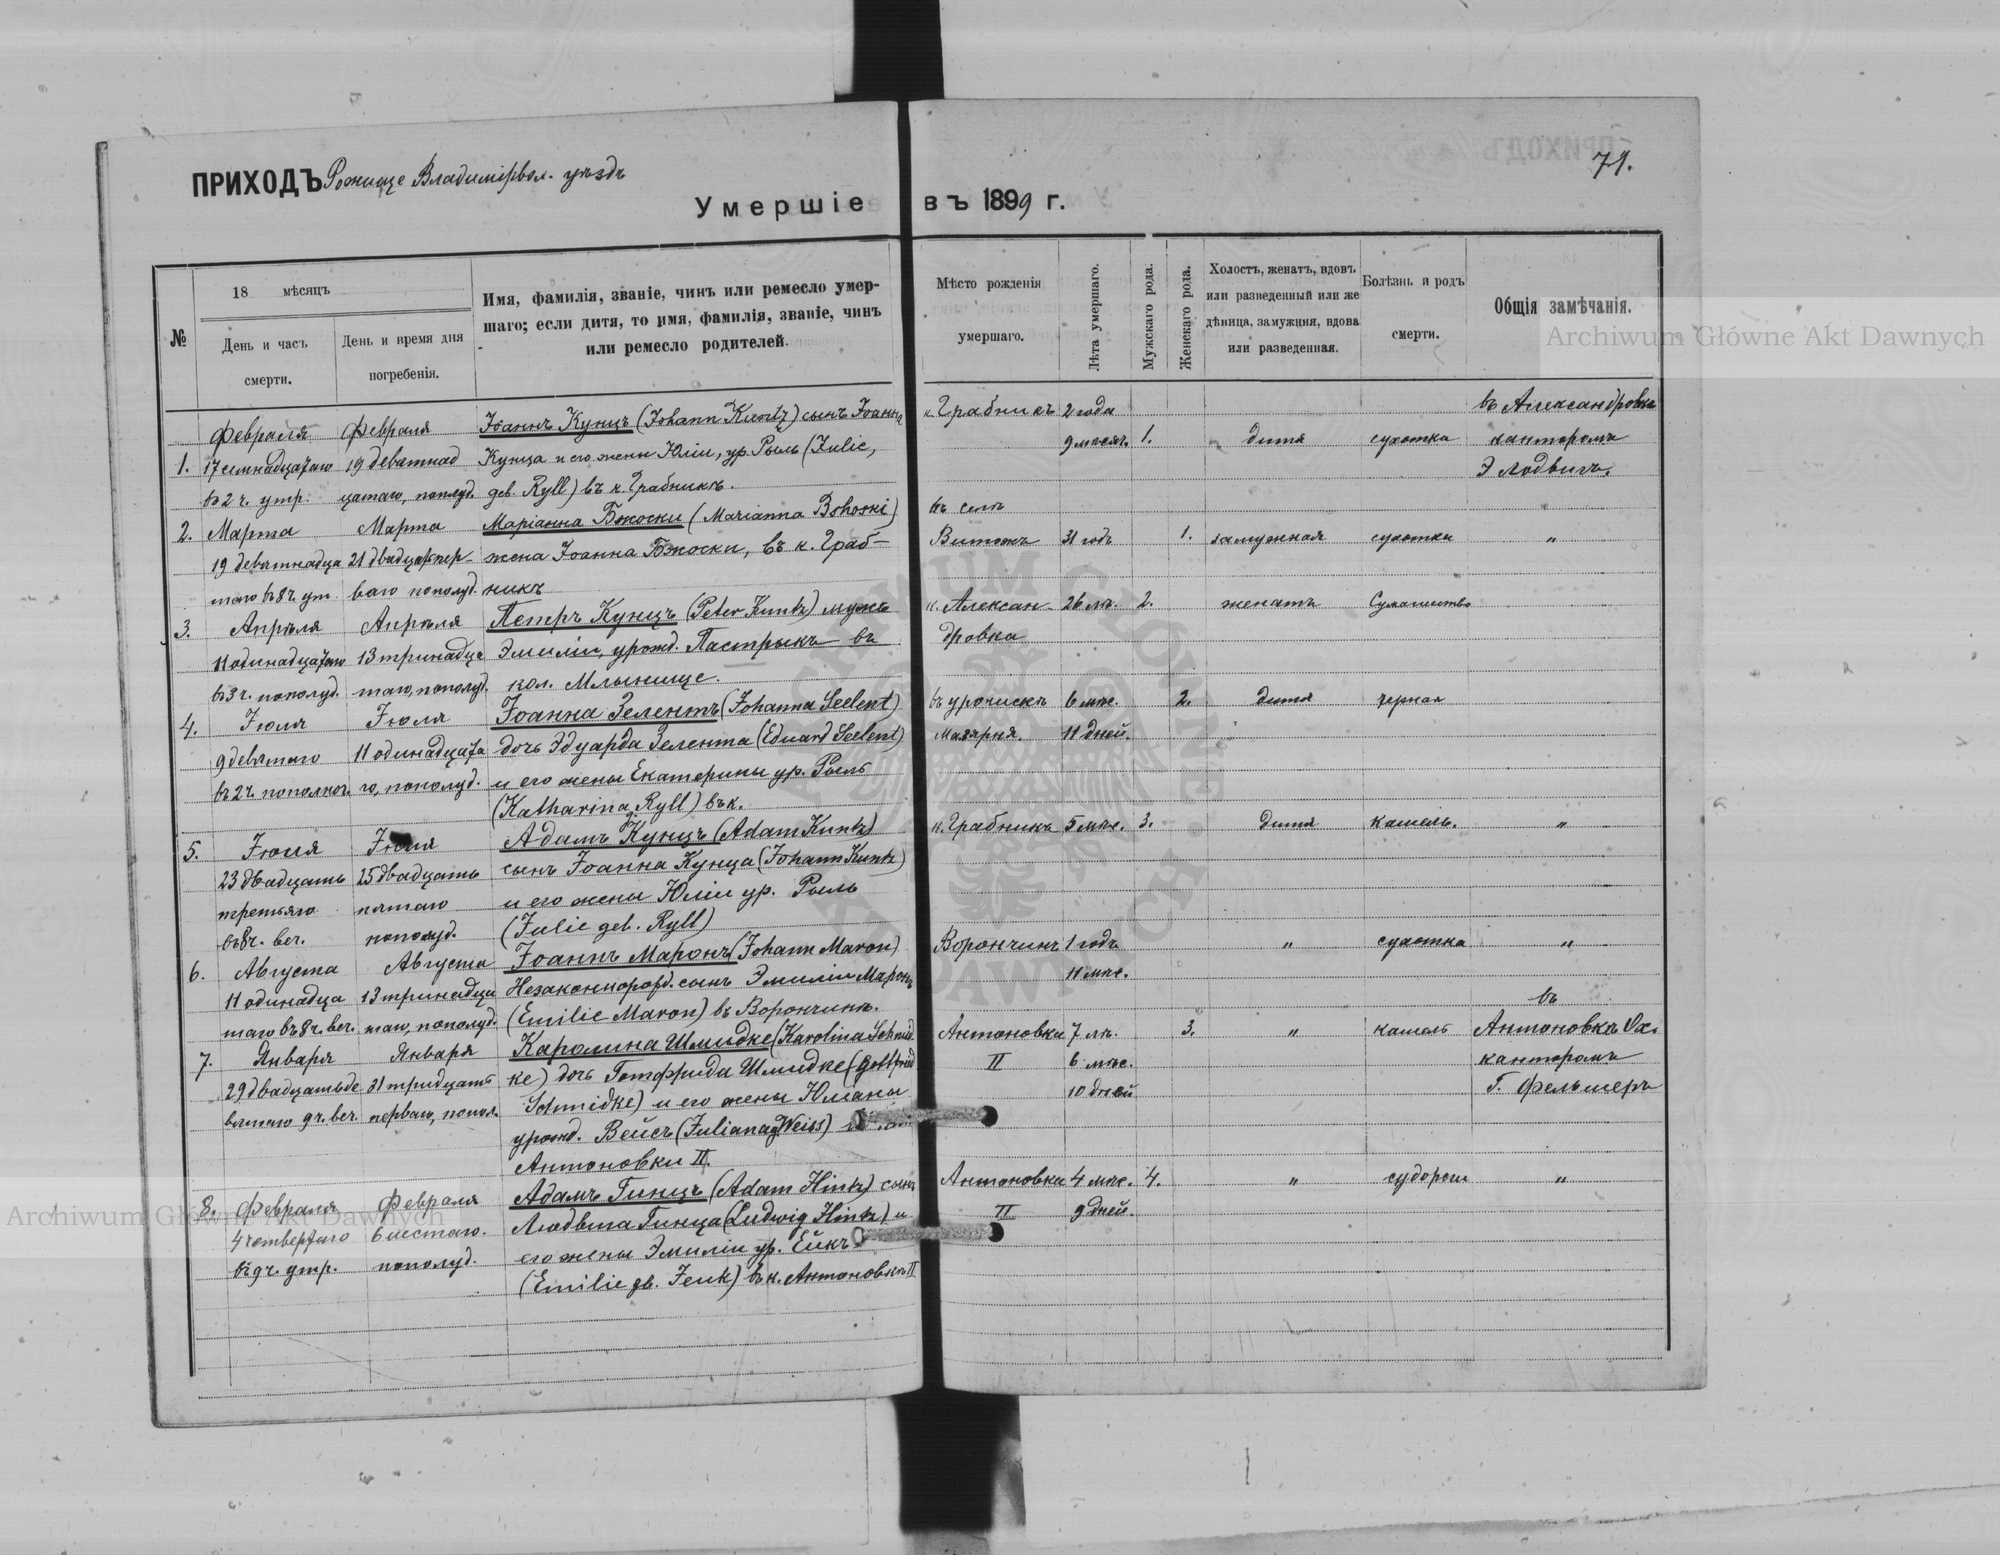 ПРИХОДЪ Рожище Владимірвол. уѣздъ
71.
Умершіе въ 1899 г.
№
18 мѣсяцъ
День и часъ смерти.
День и время дня погребенія.
Имя, фамилія, званіе, чинъ или ремесло умер-
шаго; если дитя, то имя, фамилія, званіе, чинъ
или ремесло родителей.
Мѣсто рожденія
умершаго.
Лѣта умершаго.
Мужскаго рода.
Женскаго рода.
Холостъ, женатъ, вдовъ
или разведенный или же
дѣвица, замужняя, вдова
или разведенная.
Болѣзнь и родъ
смерти.
Общія замѣчанія.
Archiwum Główne Akt Dawnych
Февраля Февраля Іоаннъ Кунцъ (Johann Kuntz) сынъ Іоанна к. Грабникъ 2 года въ Александровкѣ
1. 17 семнадцатаго 19 девятнад Кунца и его жены Юліи, ур. Рыль (Julie, 9 мѣсяч. 1. дитя сухотка канторомъ
въ 2 ч. утр. цатаго, пополуд. geb. Ryll) въ к. Грабникѣ. Э Лодвигъ.
2. Марта Марта Маріанна Бжоски (Marianna Bshoski) въ селѣ "
19 девятнадца 21 двадцатьпер- жена Іоанна Бжоски, въ к. Граб- Витонъ 31 годъ 1. замужная сухотка "
таго въ 8 ч. ут. ваго пополуд. никѣ
3. Апрѣля Апрѣля Петръ Кунцъ (Peter Kuntz) мужъ к. Алексан- 26 лѣ. 2. женатъ Сумашество
11 одинадцатаго 13 тринадца Эмиліи, урожд. Пастрыкъ въ дровка
въ 3 ч. пополуд. таго, пополуд. кол. Млынище.
4. Іюля Іюля Іоанна Зелентъ (Johanna Seelent) въ урочискѣ 6 мѣс. 2. дитя черная
9 девятаго 11 одинадцата дочь Эдуарда Зелента (Eduard Seelent) Мазярня. 11 дней.
въ 2 ч. пополноч. го, пополуд. и его жены Екатерины ур. Рыль
(Katharina Ryll) въ к.
5. Іюля Іюля Адамъ Кунцъ (Adam Kuntz) к. Грабникъ 5 мѣс. 3. дитя кашель. "
23 двадцать 25 двадцать сынъ Іоанна Кунца (Johann Kuntz)
третьяго пятаго и его жены Юліи ур. Рыль
въ 8 ч. веч. пополуд. (Julie geb. Ryll)
6. Августа Августа Іоаннъ Маронъ (Johann Maron) Ворончинъ 1 годъ " сухотка "
11 одинадца 13 тринадца Незаконнорожд. сынъ Эмиліи Маронъ 11 мѣс.
таго въ 8 ч. веч. таго, пополуд. (Emilie Maron) въ Ворончинѣ. въ
7. Января Января Каролина Шмидке (Karolina Schmid Антоновки 7 лѣ. 3. " кашель Антоновкѣ Ох.
29 двадцатьде 31 тридцать ke) дочь Готфрида Шмидке (Gottfried II 6 мѣс. канторомъ
вятаго 9 ч. веч. перваго, попол. Schmidke) и его жены Юліаны 10 дней Г. Фельшеръ
урожд. Вейсъ (Juliana Weiss)
Антоновки II.
8. Февраля Февраля Адамъ Гинцъ (Adam Hintz) сынъ Антоновки 4 мѣс. 4. " судороги "
4 четвертаго 6 шестаго. Людвига Гинца (Ludwig Hintz) и II 9 дней.
въ 9 ч. утр. пополуд. его жены Эмиліи ур. Ейкъ
(Emilie gb. Jeuk) въ к. Антоновкѣ II
Archiwum Główne Akt Dawnych
ARCHIWUM GŁÓWNE AKT DAWNYCH